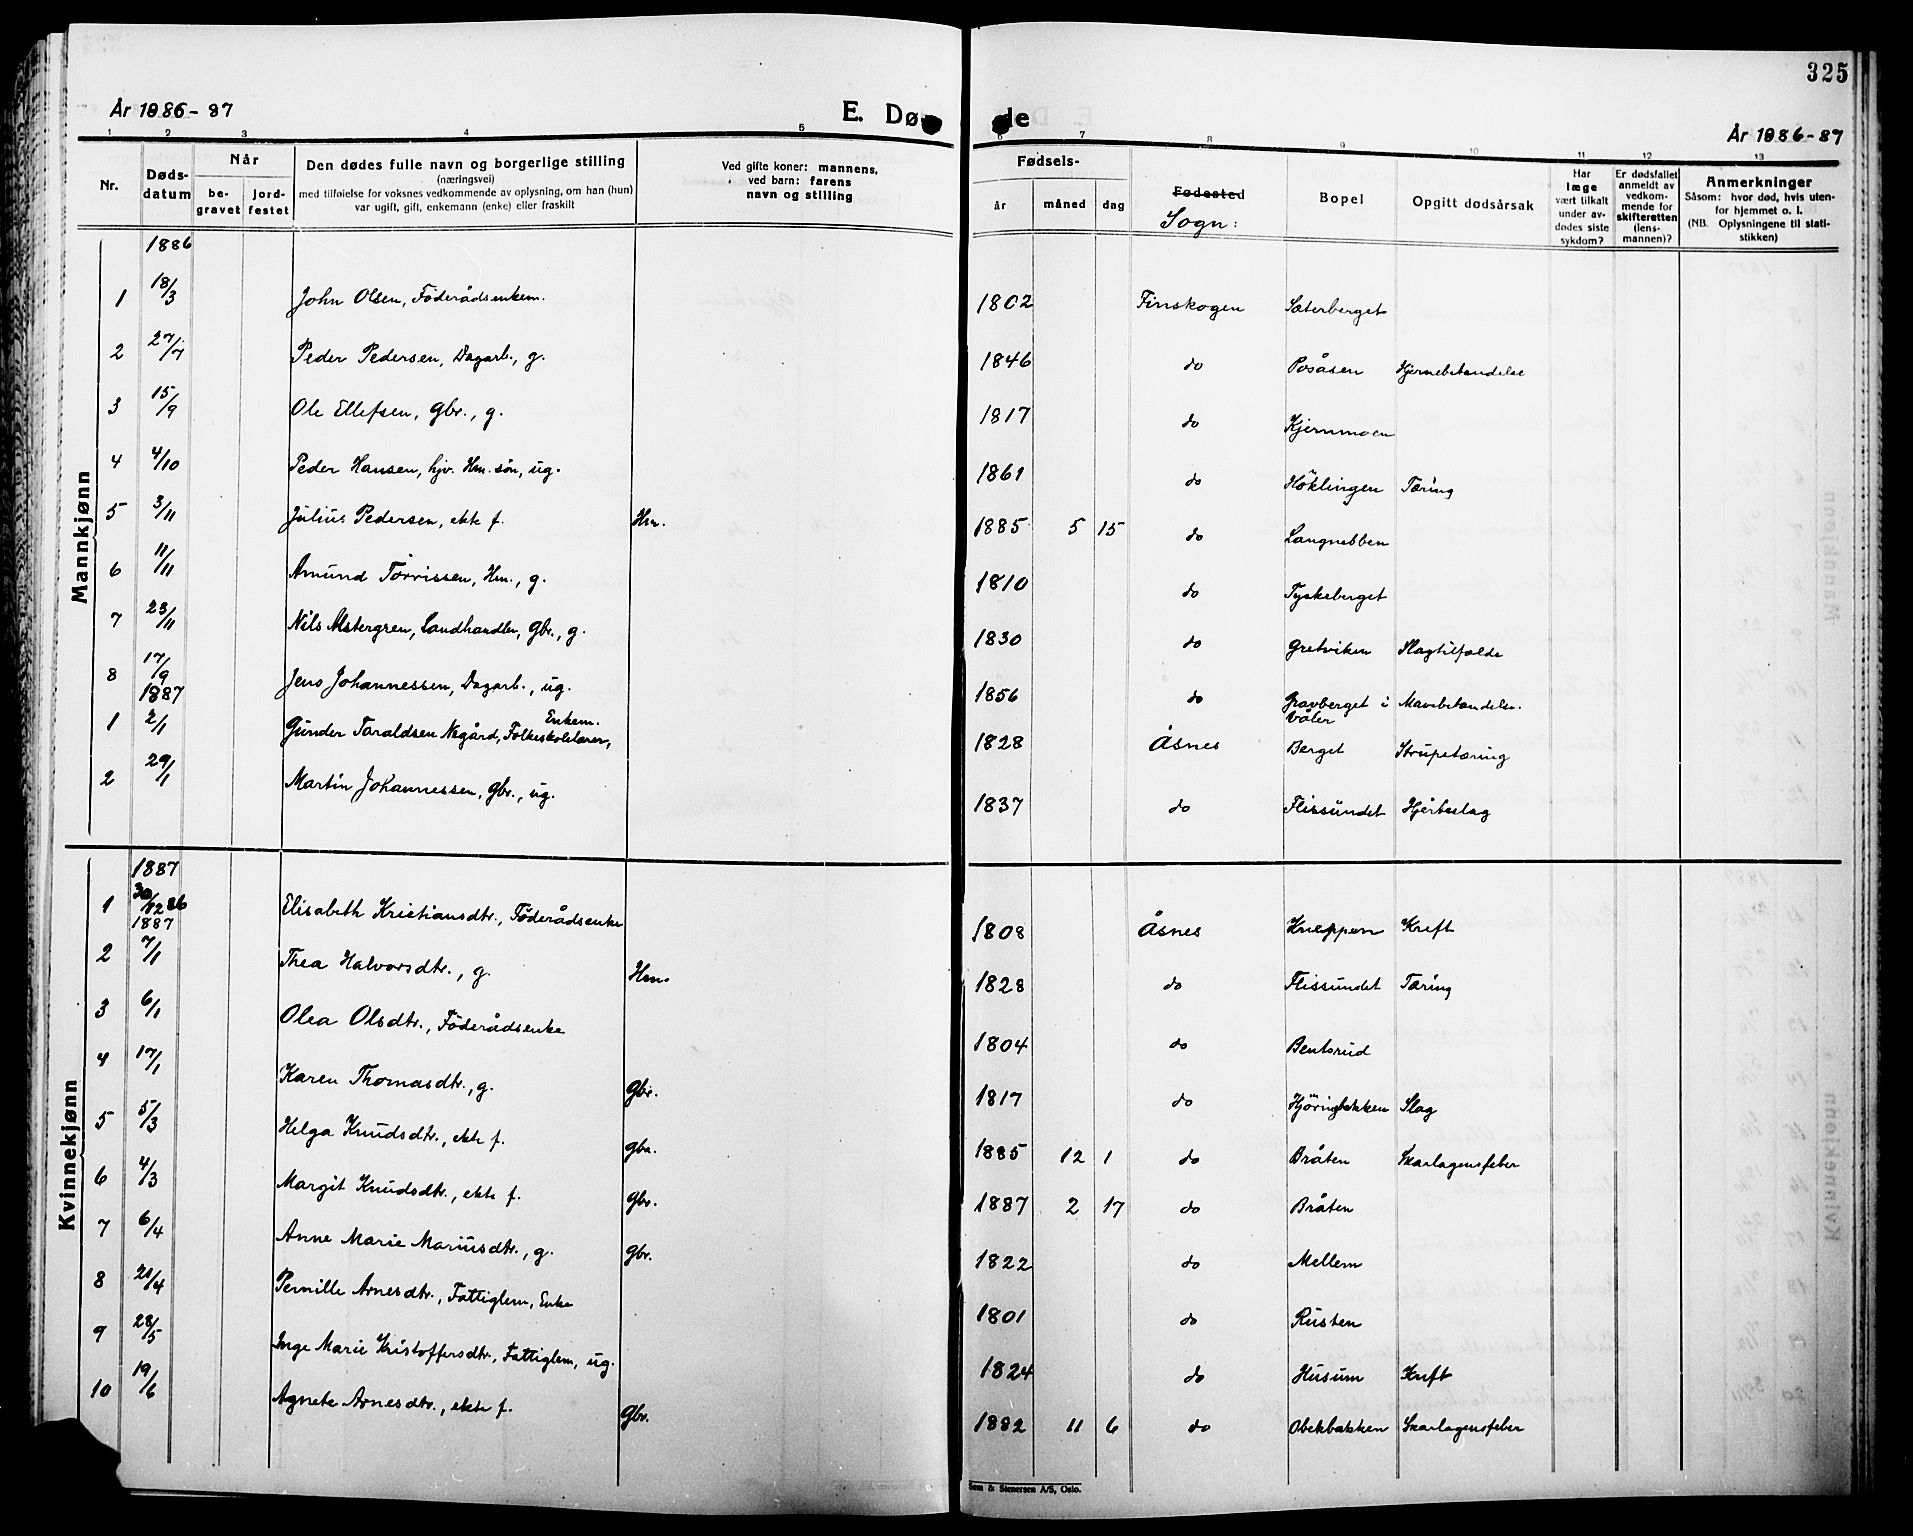 325
År 1886-87 E. Dø de År 1886-87
1 2 3 4 5 6 7 8 9 10 11 12 13
Nr. Døds-datum Når be-gravet jord-festet Den dødes fulle navn og borgerlige stilling (næringsvei) med tilføielse for voksnes vedkommende av oplysning, om han (hun) var ugift, gift, enkemann (enke) eller fraskilt Ved gifte koner: mannens, ved barn: farens navn og stilling Fødsels- år måned dag Fødested Sogn: Bopel Opgitt dødsårsak Har læge vært tilkalt under av-dødes siste sykdom? Er dødsfallet anmeldt av vedkom-mende for skifteretten (lens-mannen)? Anmerkninger Såsom: hvor død, hvis uten-for hjemmet o. l. (NB. Oplysningene til stati-stikken)
Mannkjønn
1886
1 18/3 John Olsen, Föderådsenkem. 1802 Finskogen Sæterberget
2 27/7 Peder Pedersen, Dagarb., g. 1846 do Posåsen Hjernebetendelse
3 15/9 Ole Ellefsen, Gbr., g. 1817 do Kjernmoen
4 4/10 Peder Hansen, hjv. Hm. søn, ug. 1861 do Höklingen Tæring
5 3/11 Julius Pedersen, ekte f. Hm. 1885 5 15 do Langnebben
6 11/11 Amund Torrissen, Hm., g. 1810 do Tyskeberget
7 23/11 Nils Alstergren, Landhandler, Gbr., g. 1830 do Gretviken Slagtilfælde
8 17/9 Jens Johannessen, Dagarb., ug. 1856 do Gravberget i Våler Mavebetendelse.
1887
1 2/1 Gunder Taraldsen Negård, Folkeskolelærer, Enkem. 1828 Åsnes Berget Strupetæring
2 29/1 Martin Johannessen, Gbr., ug. 1837 do Flissundet Hjerteslag
Kvinnekjønn
1887
1 30/12 86 Elisabeth Kristiansdtr., Föderådsenke 1808 Åsnes Knappen Kreft
1887
2 7/1 Thea Halvorsdtr., g. Hm. 1828 do Flissundet Tæring
3 6/1 Olea Olsdtr., Föderådsenke 1804 do Bentsrud
4 17/1 Karen Thomasdtr., g. Gbr. 1817 do Hjöringbakken Slag
5 5/3 Helga Knudsdtr., ekte f. Gbr. 1885 12 1 do Bråten Skarlagensfeber
6 4/3 Margit Knudsdtr., ekte f. Gbr. 1887 2 17 do Bråten
7 6/4 Anne Marie Mariusdtr., g. Gbr. 1822 do Mellem
8 21/4 Pernille Arnesdtr., Fattiglem, Enke 1801 do Rusten
9 28/5 Inge Marie Kristoffersdtr., Fattiglem, ug. 1824 do Husum Kreft
10 19/6 Agnete Arnesdtr., ekte f. Gbr. 1882 11 6 do Obekbakken Skarlagensfeber
Sem & Stenersen A/S, Oslo.